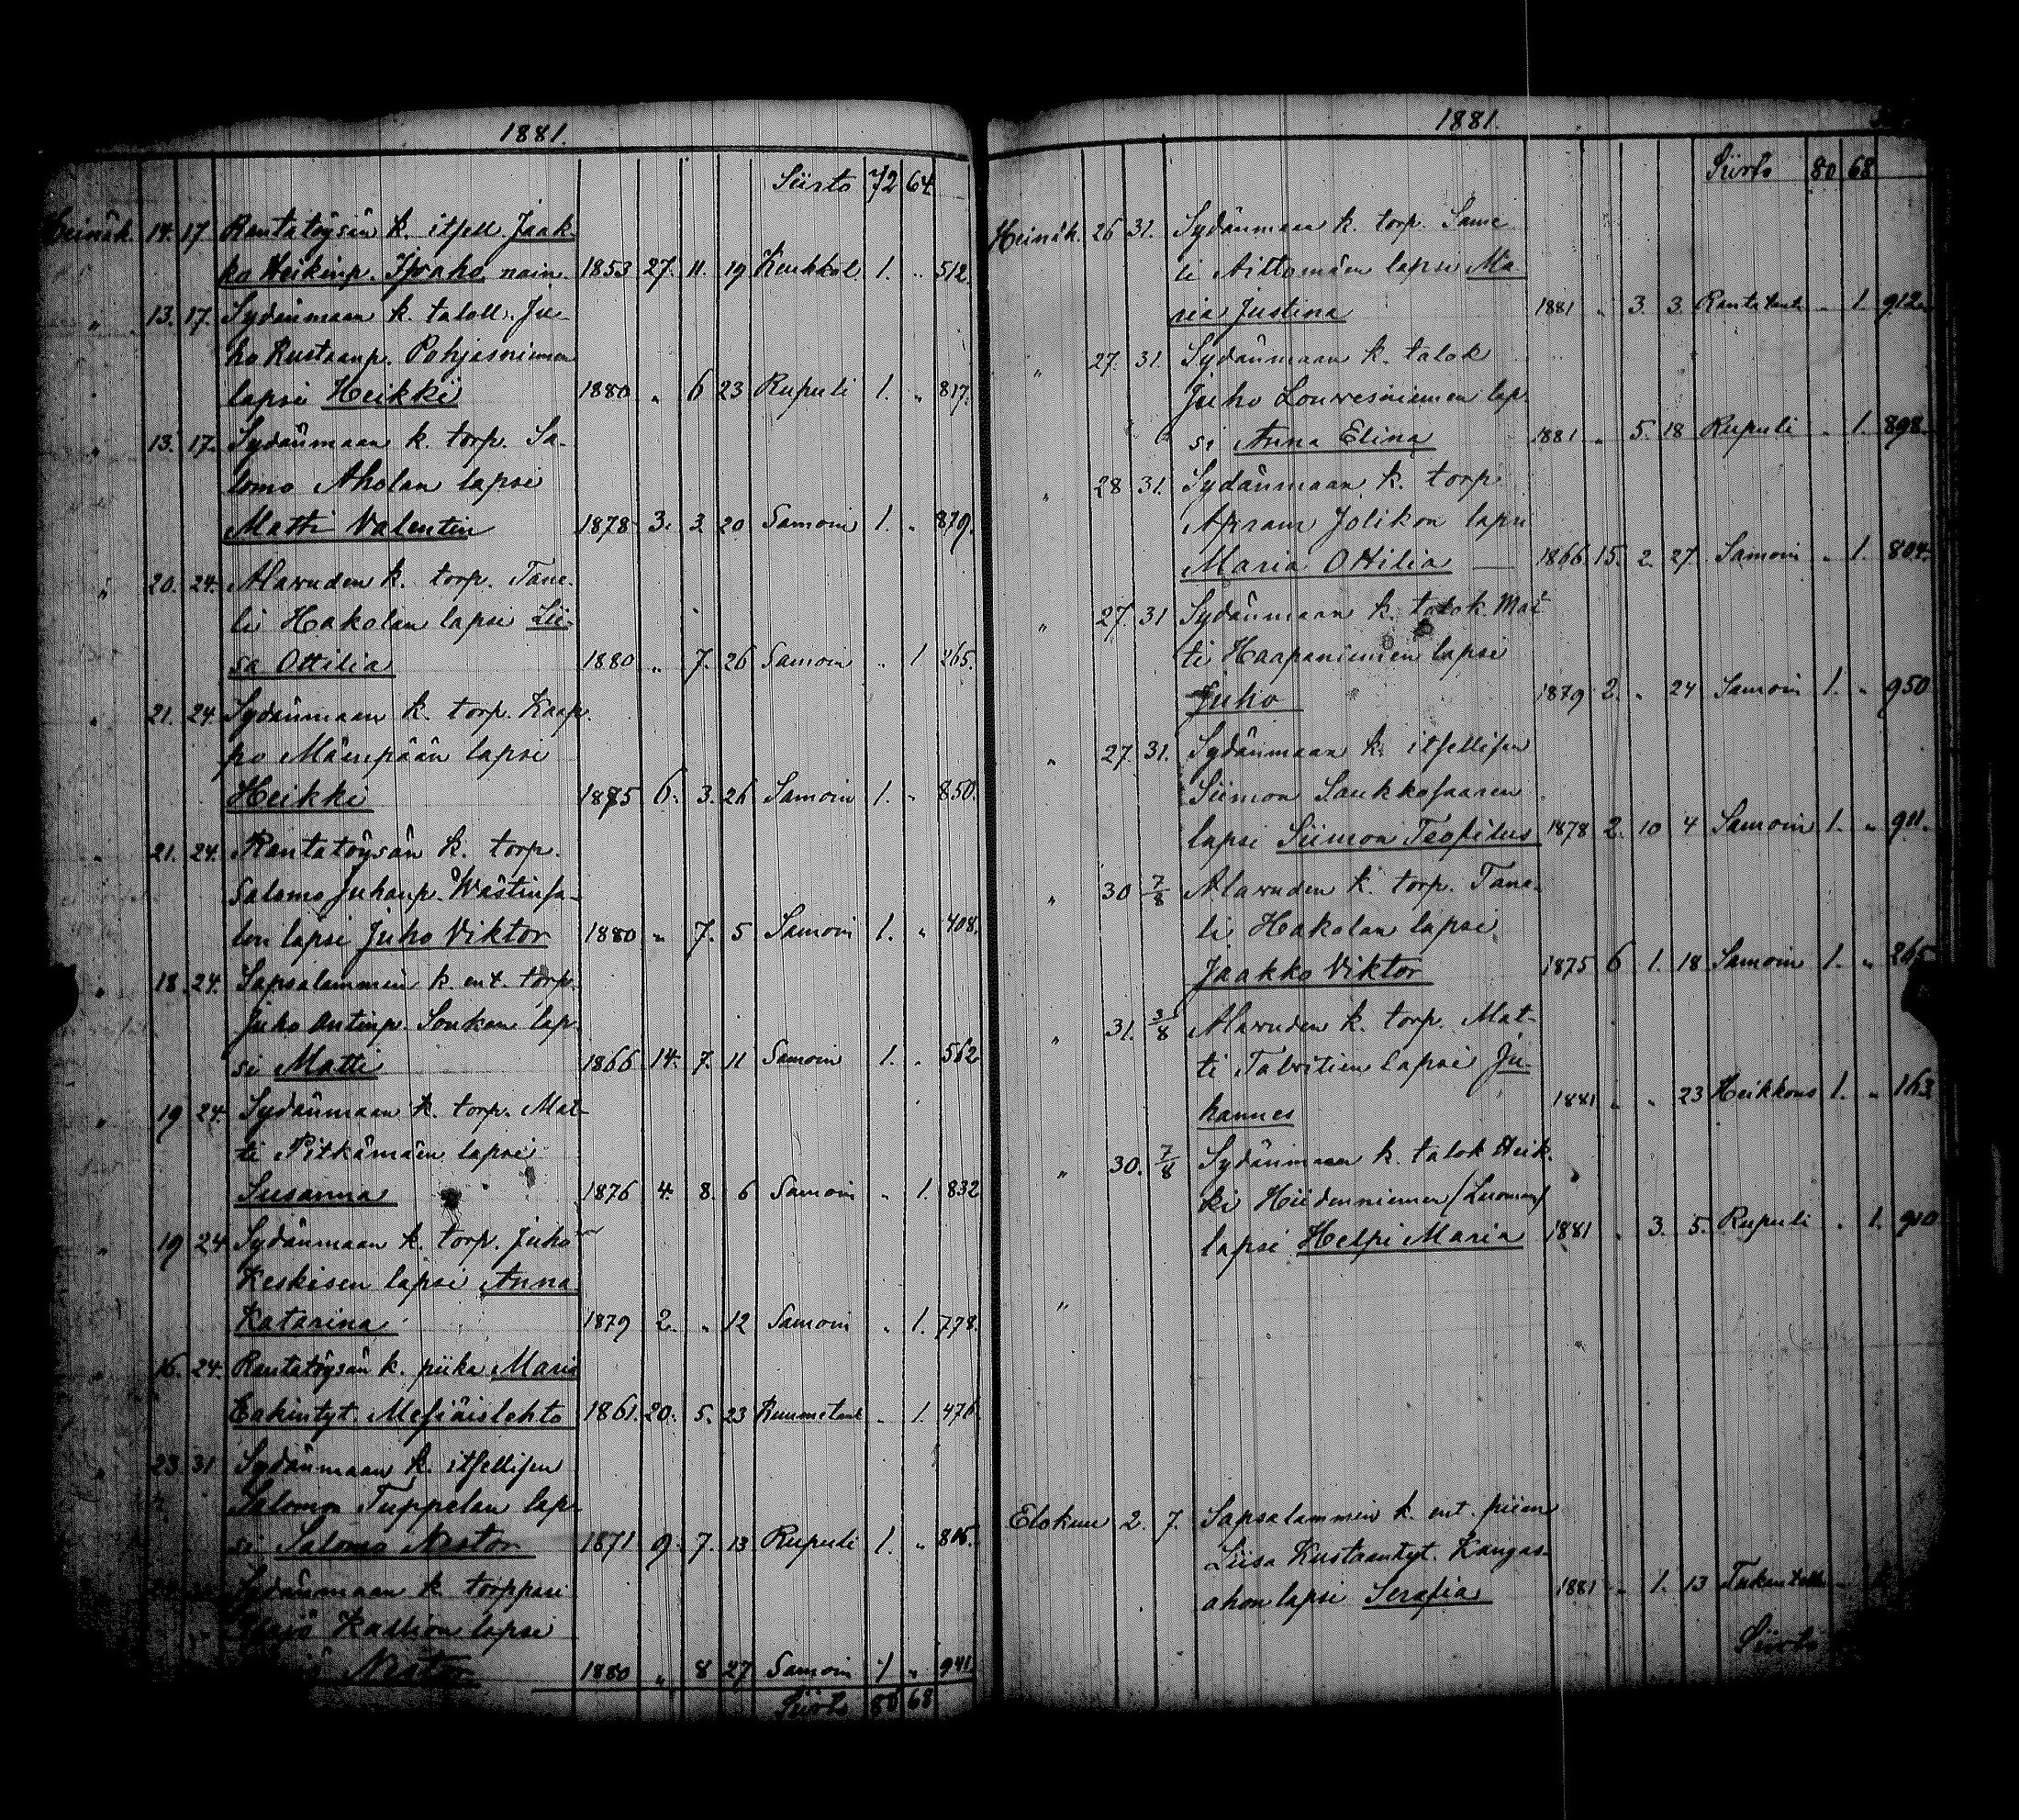 1881.
Siirto 72 64
Heinäk. 14. 17 Rantatöysän k. itsell Jaak-
ko Heikinp. nain. 1853 27. 11. 19 Keuhkot. 1. " 512.
" 13. 17. Sydänmaan k. taloll. Ju-
ho Kustaanp. Pohjasniemen
lapsi Heikki 1880 " 6 23 Rupuli 1. " 817.
" 13. 17. Sydänmaan k. torp. Sa-
lomo Aholan lapsi
Matti Valentin 1878 3. 3 20 Samoin 1. " 879.
" 20. 24. Alavuden k. torp. Tane-
li Hakolan lapsi Lii-
sa Ottilia 1880 " 7. 26 Samoin " 1 265.
" 21. 24. Sydänmaan k. torp. Kaap-
po Mäenpään lapsi
Heikki 1875 6. 3. 26 Samoin 1. " 850.
" 21. 24. Rantatöysän k. torp.
Salomo Juhanp. Wästinsa-
lon lapsi Juho Viktor 1880 " 7. 5 Samoin 1. " 408.
" 18. 24. Sapsalammin k. ent. torp.
Juho Antinp. Soukan lap-
si Matti 1866 14. 7. 11 Samoin 1. " 562
" 19 24. Sydänmaan k. torp. Mat-
ti Pitkämäen lapsi
Susanna 1876 4. 8. 6 Samoin " 1. 832
" 19 24 Sydänmaan k. torp. Juho
Keskisen lapsi Anna
Katarina 1879 2. " 12 Samoin " 1. 778.
" 16. 24. Rantatöysän k. piika Maria
Eakintyt. Mesiäislehto 1861. 20. 5. 23 " 1. 476.
" 23 31 Sydänmaan k. itsellisen
Salomon Tuppelan lap-
si Salomo Nestor 1871 9. 7. 13 Rupuli 1. "
Sydänmaan k. torppari
Kallion lapsi
Nestor 1880 " 8 27 Samoin 1 " 941.
Siirto 80 68
1881.
Siirto 80 68
Heinäk. 26 31. Sydänmaan k. torp. Same
li Aittomäen lapsi Ma-
ria Justina 1881 " 3. 3. Rantataut " 1. 912.
" 27. 31. Sydänmaan k. talok
Juho Louvesniemen lap-
si Anna Elina 1881 " 5. 18 Rupuli " 1. 898.
" 28 31. Sydänmaan k. torp
Apram Jolikon lapsi
Maria Ottilia 1866. 15. 2. 27 Samoin " 1. 804.
" 27. 31 Sydänmaan k. talok. Mat-
ti Haapaniemen lapsi
Juho 1879 2. " 24 Samoin 1. " 950
" 27. 31. Sydänmaan k. itsellisen
Siimon Saukkosaaren
lapsi Siimon Teofilus 1878 2. 10 4 Samoin 1. " 911.
" 30 7/8 Alavuden k. torp. Tane-
li Hakolan lapsi
Jaakko Viktor 1875 6 1. 18 Samoin 1. " 265
" 31. 3/8 Alavuden k. torp. Mat-
ti lapsi Ju-
hannes 1881 " " 23 Heikkous 1. " 163
" 30. 7/8 Sydänmaan k. talok Heik-
ki Hiidenniemen (Luoman)
lapsi Helpi Maria 1881 " 3. 5. Rupuli " 1. 910
"
Elokuu 2. 7. Sapsalammin k. ent. piian
Liisa Kustaantyt. Kangas-
ahon lapsi Serafia 1881 " 1. 13
Siirto